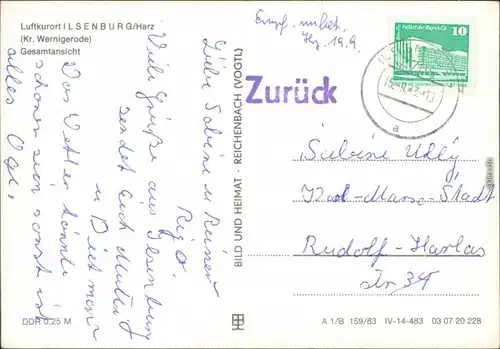 Luftkurort ILSENBURG/Harz
(Kr. Wernigerode)
Gesamtansicht
Liebe Sabine u Reiner
Rigo.
Viele Grüße aus Ilsenburg
sendet Euch Mutti
u Dietmar
Das Wetter könnte
schöner sein sonst ist
alles
DDR 0,25 M
BILD UND HEIMAT · REICHENBACH (VOGTL)
Empf. unbek.
19.9.
Palast der Republik
10
Zurück
a
Sabine
Karl-Marx-Stadt
Rudolf-Harlas
str 34
A 1/B 159/83 IV-14-483 03 07 20 228